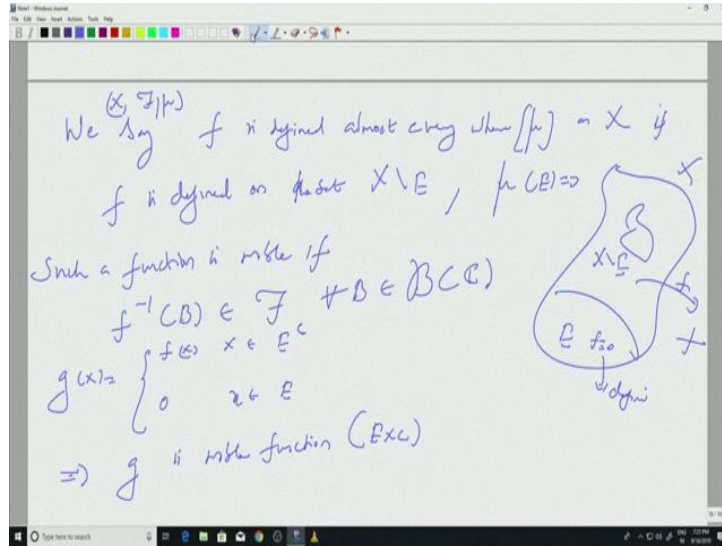 Note1 - Windows Journal
File Edit View Insert Actions Tools Help
(X, F, μ)
We say f is defined almost every where [μ] on X if
f is defined on the set X\E, μ(E)=0
Such a function is mble if
f⁻¹(B) ∈ F ∀B ∈ B(C)
g(x)= { f(x) x ∈ Eᶜ
0 x ∈ E
⇒) g is mble function (Exc)
X
X\E
f
E f=0
Type here to search
ENG 7:23 PM
IN